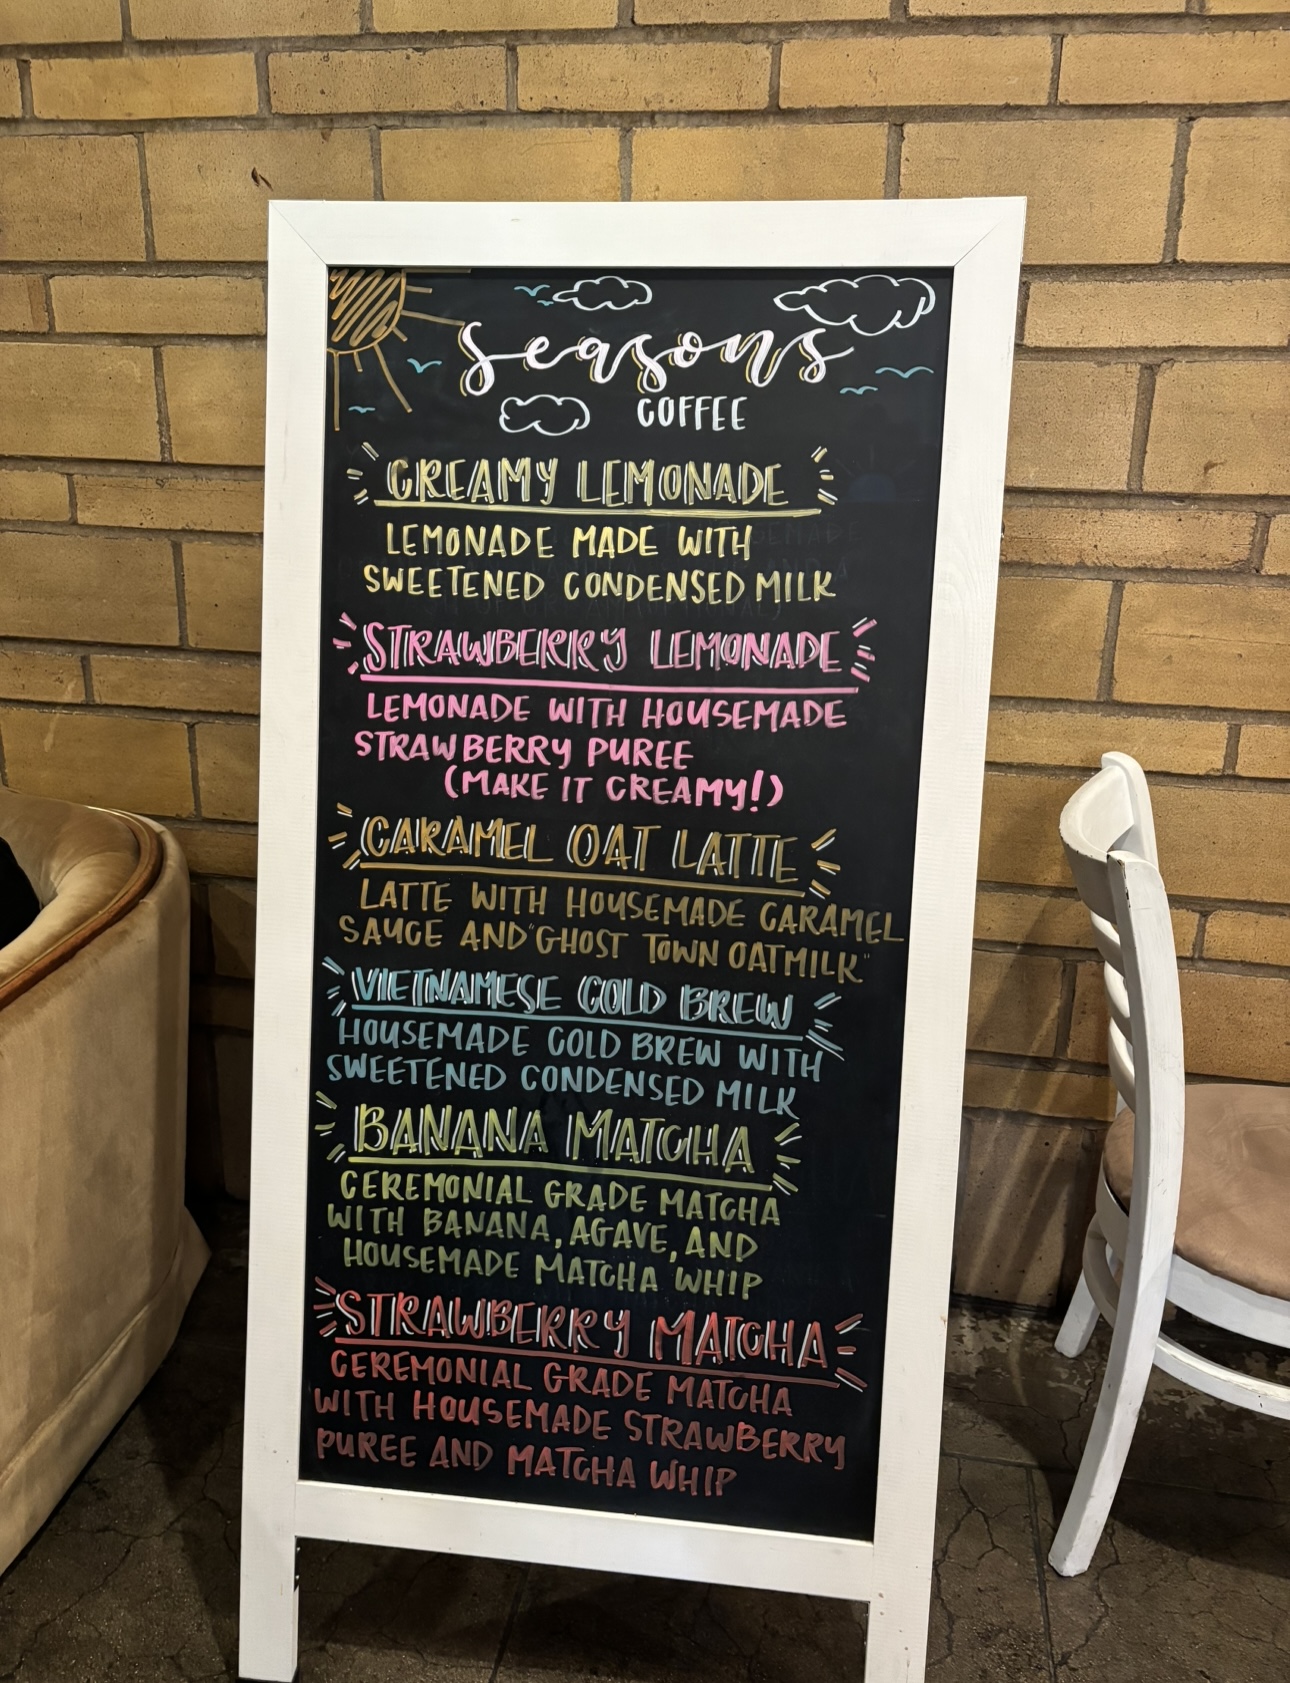 seasons
COFFEE
CREAMY LEMONADE
LEMONADE MADE WITH
SWEETENED CONDENSED MILK
STRAWBERRY LEMONADE
LEMONADE WITH HOUSEMADE
STRAWBERRY PUREE
(MAKE IT CREAMY!)
CARAMEL OAT LATTE
LATTE WITH HOUSEMADE CARAMEL
SAUCE AND "GHOST TOWN OATMILK"
VIETNAMESE COLD BREW
HOUSEMADE COLD BREW WITH
SWEETENED CONDENSED MILK
BANANA MATCHA
CEREMONIAL GRADE MATCHA
WITH BANANA, AGAVE, AND
HOUSEMADE MATCHA WHIP
STRAWBERRY MATCHA
CEREMONIAL GRADE MATCHA
WITH HOUSEMADE STRAWBERRY
PUREE AND MATCHA WHIP